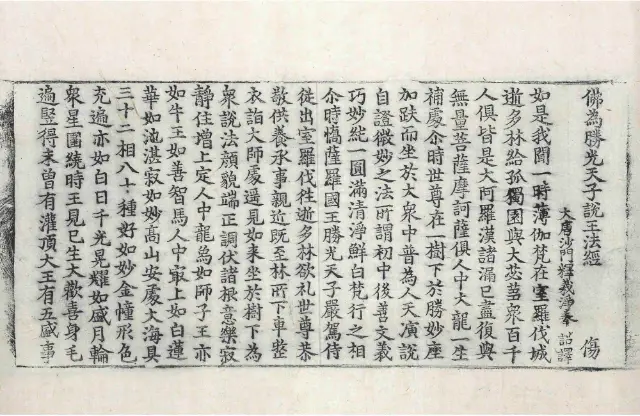 佛為勝光天子說王法經 傷
大唐沙門釋義淨奉 詔譯
如是我聞一時薄伽梵在室羅伐城
逝多林給孤獨園與大苾芻眾百千
人俱皆是大阿羅漢諸漏已盡復與
無量菩薩摩訶薩俱人中大龍一生
補處尒時世尊在一樹下於勝妙座
加趺而坐於大眾中普為人天演說
自證微妙之法所謂初中後善文義
巧妙純一圓滿清淨鮮白梵行之相
尒時憍薩羅國王勝光天子嚴駕侍
從出室羅伐往逝多林欲礼世尊恭
敬供養承事親近既至林所下車整
衣詣大師處遥見如來坐於樹下為
眾說法顔貌端正調伏諸根意樂寂
靜住增上定人中龍為如師子王亦
如牛王如善智馬人中冣上如白蓮
華如池湛寂如妙高山安處大海具
三十二相八十種好如妙金幢形色
充遍亦如白日千光晃耀如盛月輪
眾星圍繞時王見已生大歡喜身毛
遍竪得未曾有灌頂大王有五盛事